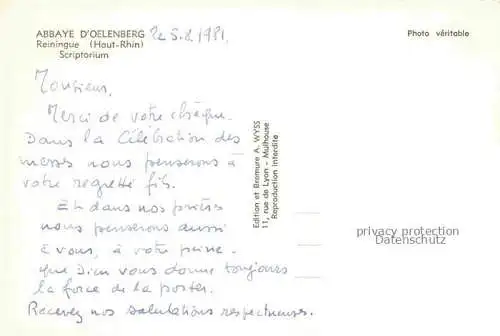 ABBAYE D'OELENBERG
Reiningue (Haut-Rhin)
Scriptorium
Photo véritable
le 5.8.1981.
Monsieur,
Merci de votre chèque.
Dans la Célébration des
messes nous penserons à
votre regretté fils.
Et dans nos prières
nous penserons aussi
à vous, à votre peine.
que Dieu vous donne toujours
la force de la porter.
Recevez nos salutations respectueuses.
Edition et Bromure A. WYSS
11, rue de Lyon - Mulhouse
Reproduction Interdite
privacy protection
Datenschutz